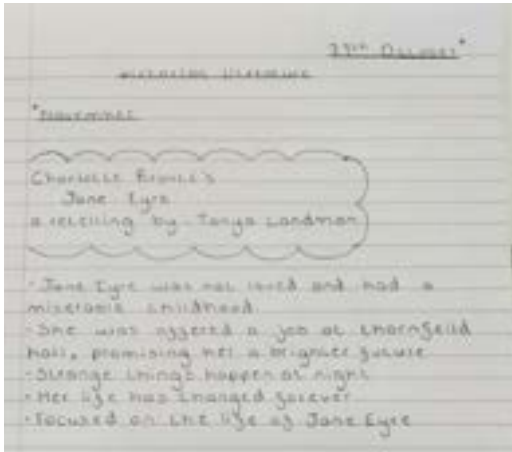 Victorian literature
*November
Charlotte Bronte's
Jane Eyre
a retelling by Tanya Landman
- Jane Eyre was not loved and had a
miserable childhood
- She was offered a job at thornfeild
hall, promising her a brighter future
- Strange things happen at night
- Her life has changed forever
- Focused on the life of Jane Eyre